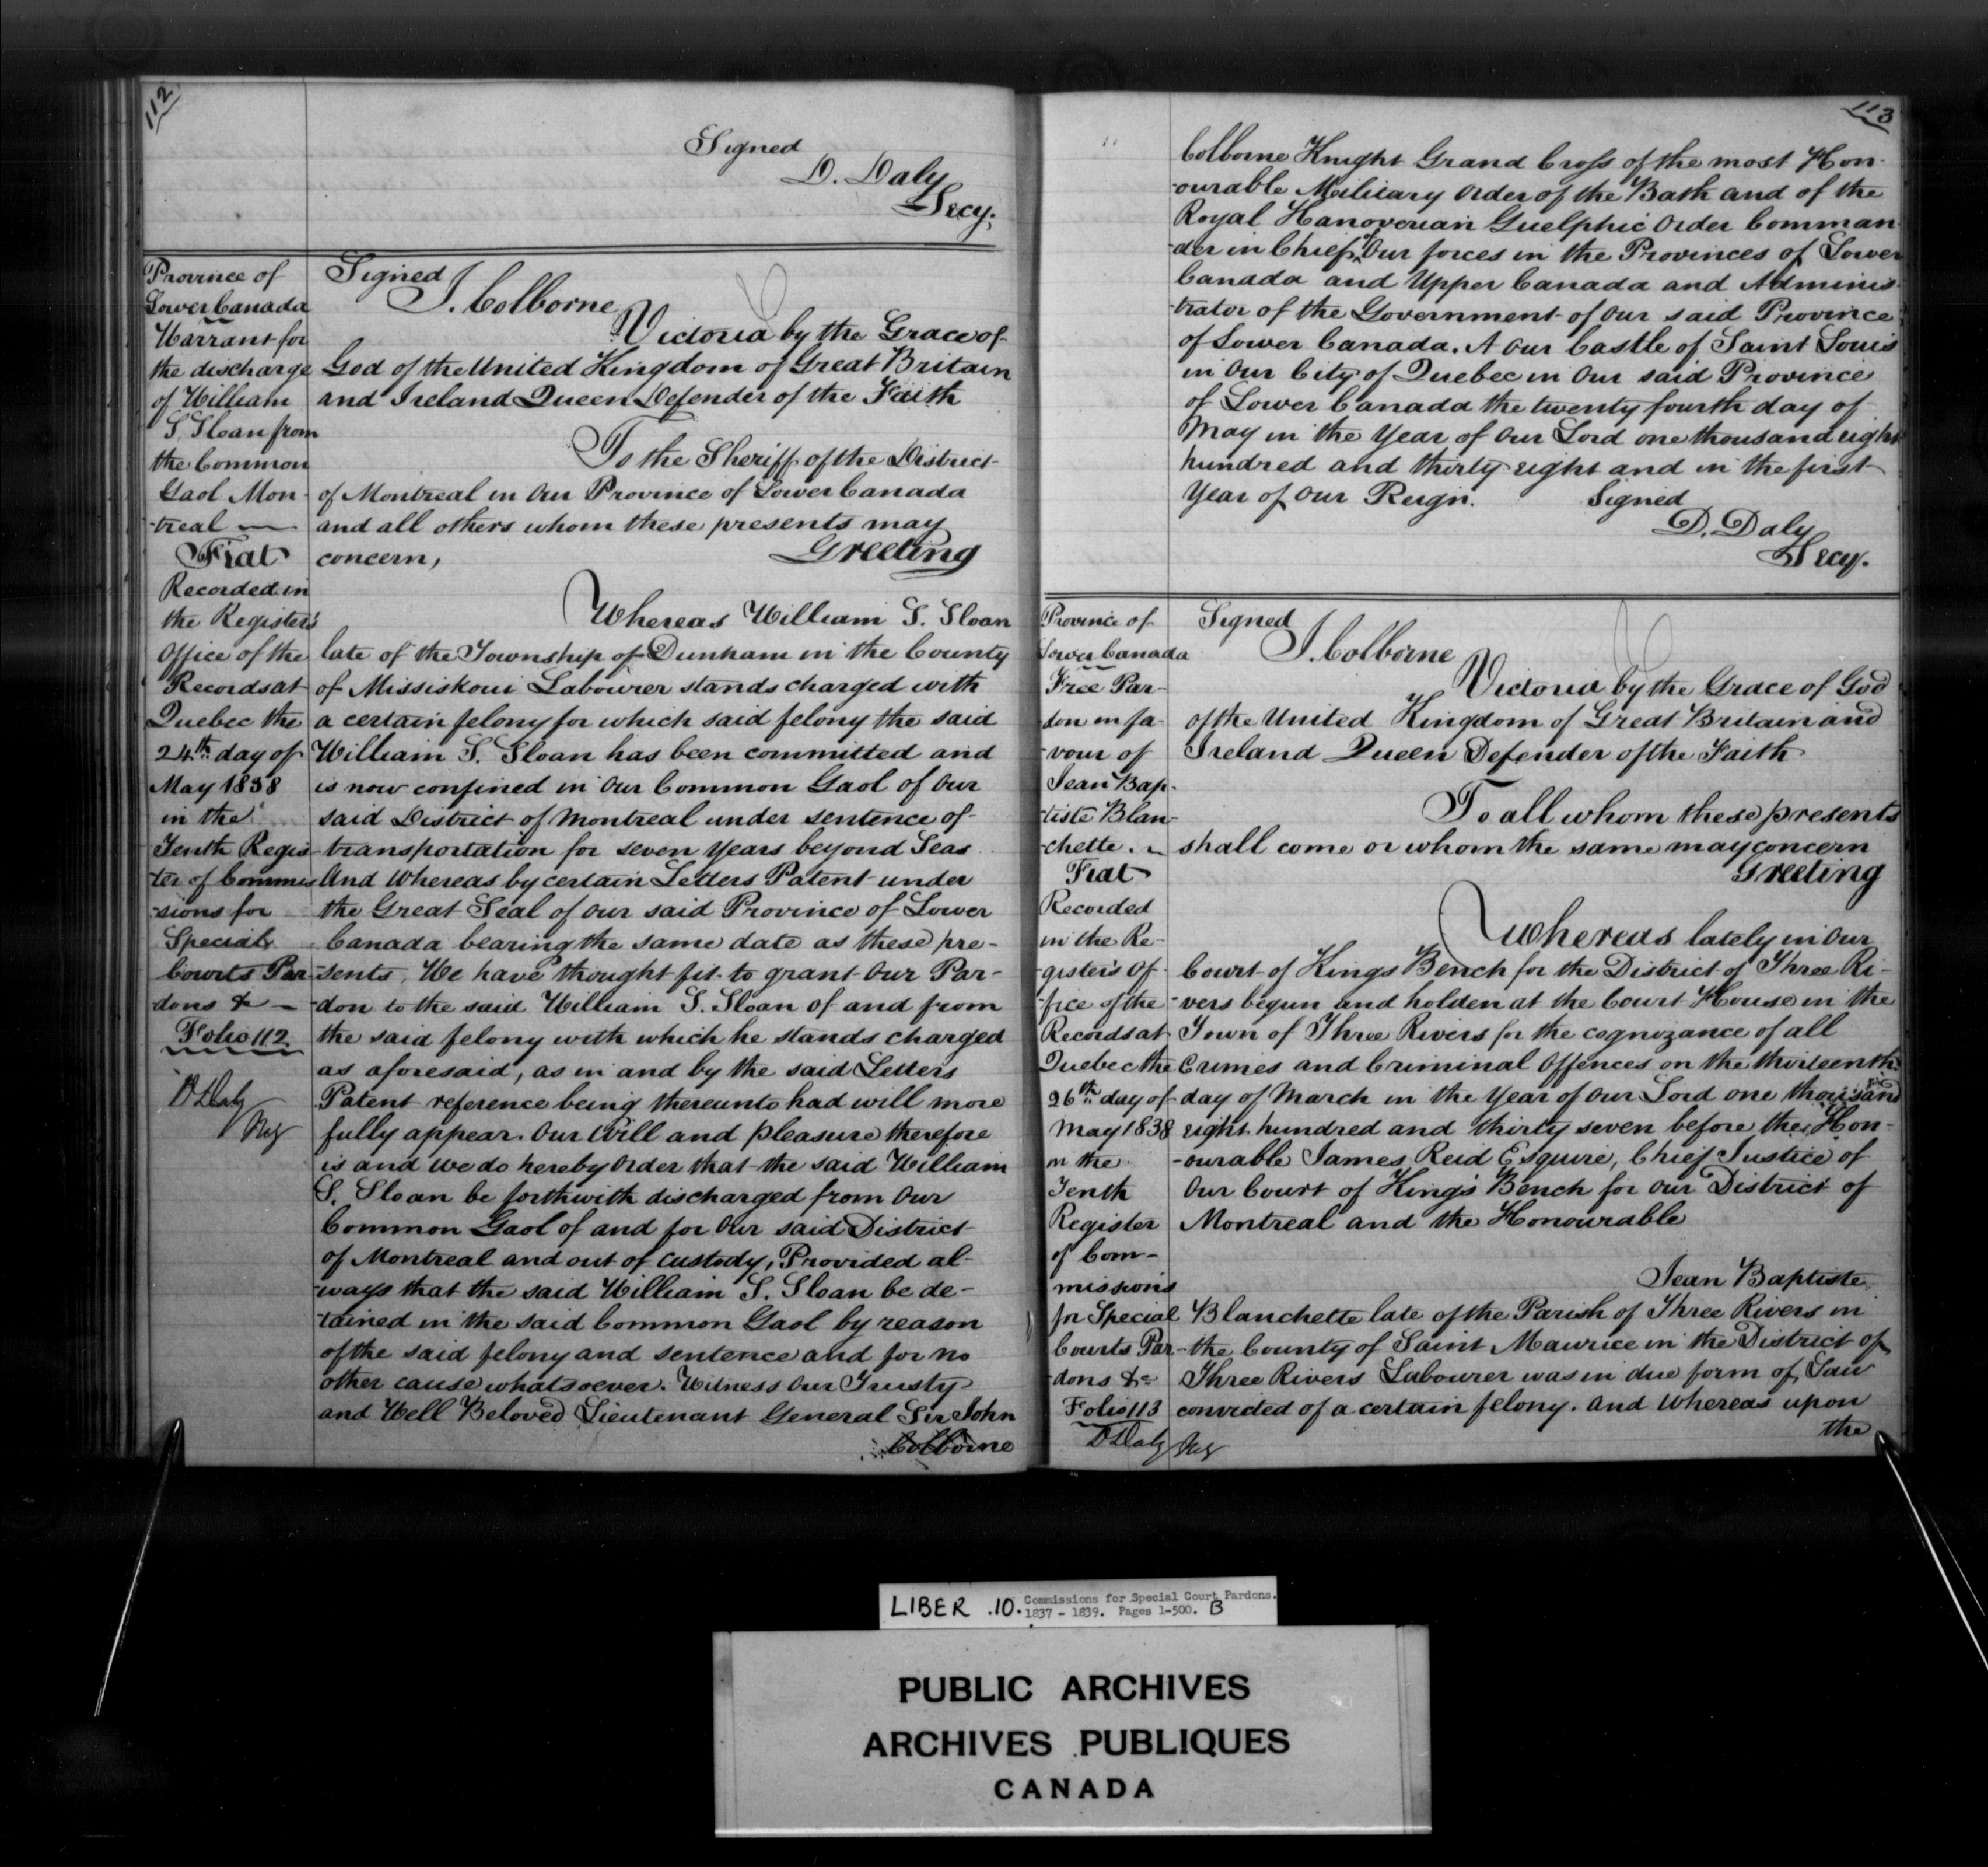 112
Signed
D. Daly
Secy.
Province of
Lower Canada
Warrant for
the discharge
of William
S. Sloan from
the Common
Gaol Mon-
-treal —
Fiat
Recorded in
the Register's
Office of the
Records at
Quebec the
24th day of
May 1838
in the
Tenth Regis-
ter of Commis
-sions for
Special
Courts Par-
dons & —
Folio 112
D Daly
Reg
Signed
J. Colborne
Victoria by the Grace of
God of the United Kingdom of Great Britain
and Ireland Queen Defender of the Faith
To the Sheriff of the District
of Montreal in Our Province of Lower Canada
and all others whom these presents may
concern, Greeting
Whereas William S. Sloan
late of the Township of Dunham in the County
of Missiskoui Labourer stands charged with
a certain felony for which said felony the said
William S. Sloan has been committed and
is now confined in Our Common Gaol of Our
said District of Montreal under sentence of
transportation for seven Years beyond Seas
And Whereas by certain Letters Patent under
the Great Seal of Our said Province of Lower
Canada bearing the same date as these pre-
-sents, We have thought fit to grant Our Par-
-don to the said William S. Sloan of and from
the said felony with which he stands charged
as aforesaid, as in and by the said Letters
Patent reference being thereunto had will more
fully appear. Our Will and pleasure therefore
is and We do hereby Order that the said William
S. Sloan be forthwith discharged from Our
Common Gaol of and for Our said District
of Montreal and out of custody, Provided al-
-ways that the said William S. Sloan be de-
-tained in the said Common Gaol by reason
of the said felony and sentence and for no
other cause whatsoever. Witness Our Trusty
and Well Beloved Lieutenant General Sir John
Colborne
113
Colborne Knight Grand Cross of the most Hon-
-ourable Military Order of the Bath and of the
Royal Hanoverian Guelphic Order Comman-
-der in Chief of Our forces in the Provinces of Lower
Canada and Upper Canada and Adminis-
-trator of the Government of Our said Province
of Lower Canada. A Our Castle of Saint Louis
in Our City of Quebec in Our said Province
of Lower Canada the twenty fourth day of
May in the Year of Our Lord one thousand eight
hundred and thirty eight and in the first
Year of Our Reign. Signed
D. Daly
Secy.
Province of
Lower Canada
Free Par-
don in fa-
-vour of
Jean Bap-
-tiste Blan-
chette. ~
Fiat
Recorded
in the Re-
-gister's Of-
-fice of the
Records at
Quebec the
26th day of
May 1838
in the
Tenth
Register
of Com-
missions
for Special
Courts Par-
dons &c
Folio 113
D Daly Reg
Signed
J. Colborne
Victoria by the Grace of God
of the United Kingdom of Great Britain and
Ireland Queen Defender of the Faith
To all whom these presents
shall come or whom the same may concern
Greeting
Whereas lately in Our
Court of Kings Bench for the District of Three Ri-
-vers begun and holden at the Court House in the
Town of Three Rivers for the cognizance of all
Crimes and Criminal Offences on the thirteenth
day of March in the Year of Our Lord one thousand
eight hundred and thirty seven before the Hon-
-ourable James Reid Esquire, Chief Justice of
Our Court of King's Bench for Our District of
Montreal and the Honourable
Jean Baptiste
Blanchette late of the Parish of Three Rivers in
the County of Saint Maurice in the District of
Three Rivers Labourer was in due form of Law
convicted of a certain felony. And Whereas upon
the
LIBER .10. Commissions for Special Court Pardons.
1837 - 1839. Pages 1-500. B
PUBLIC ARCHIVES
ARCHIVES PUBLIQUES
CANADA